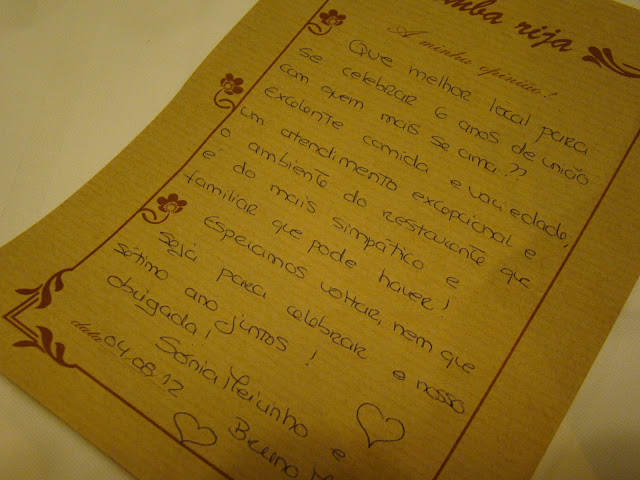 mba rija
A minha opinião!
Que melhor local para
se celebrar 6 anos de união
com quem mais se ama??
Excelente comida e variedade,
um atendimento excepcional e
o ambiente do restaurante que
é do mais simpático e
familiar que pode haver!
Esperamos voltar, nem que
seja para celebrar o nosso
sétimo ano juntos!
Obrigada!
Sónia Meirinho e
Bruno
data: 04.08.12